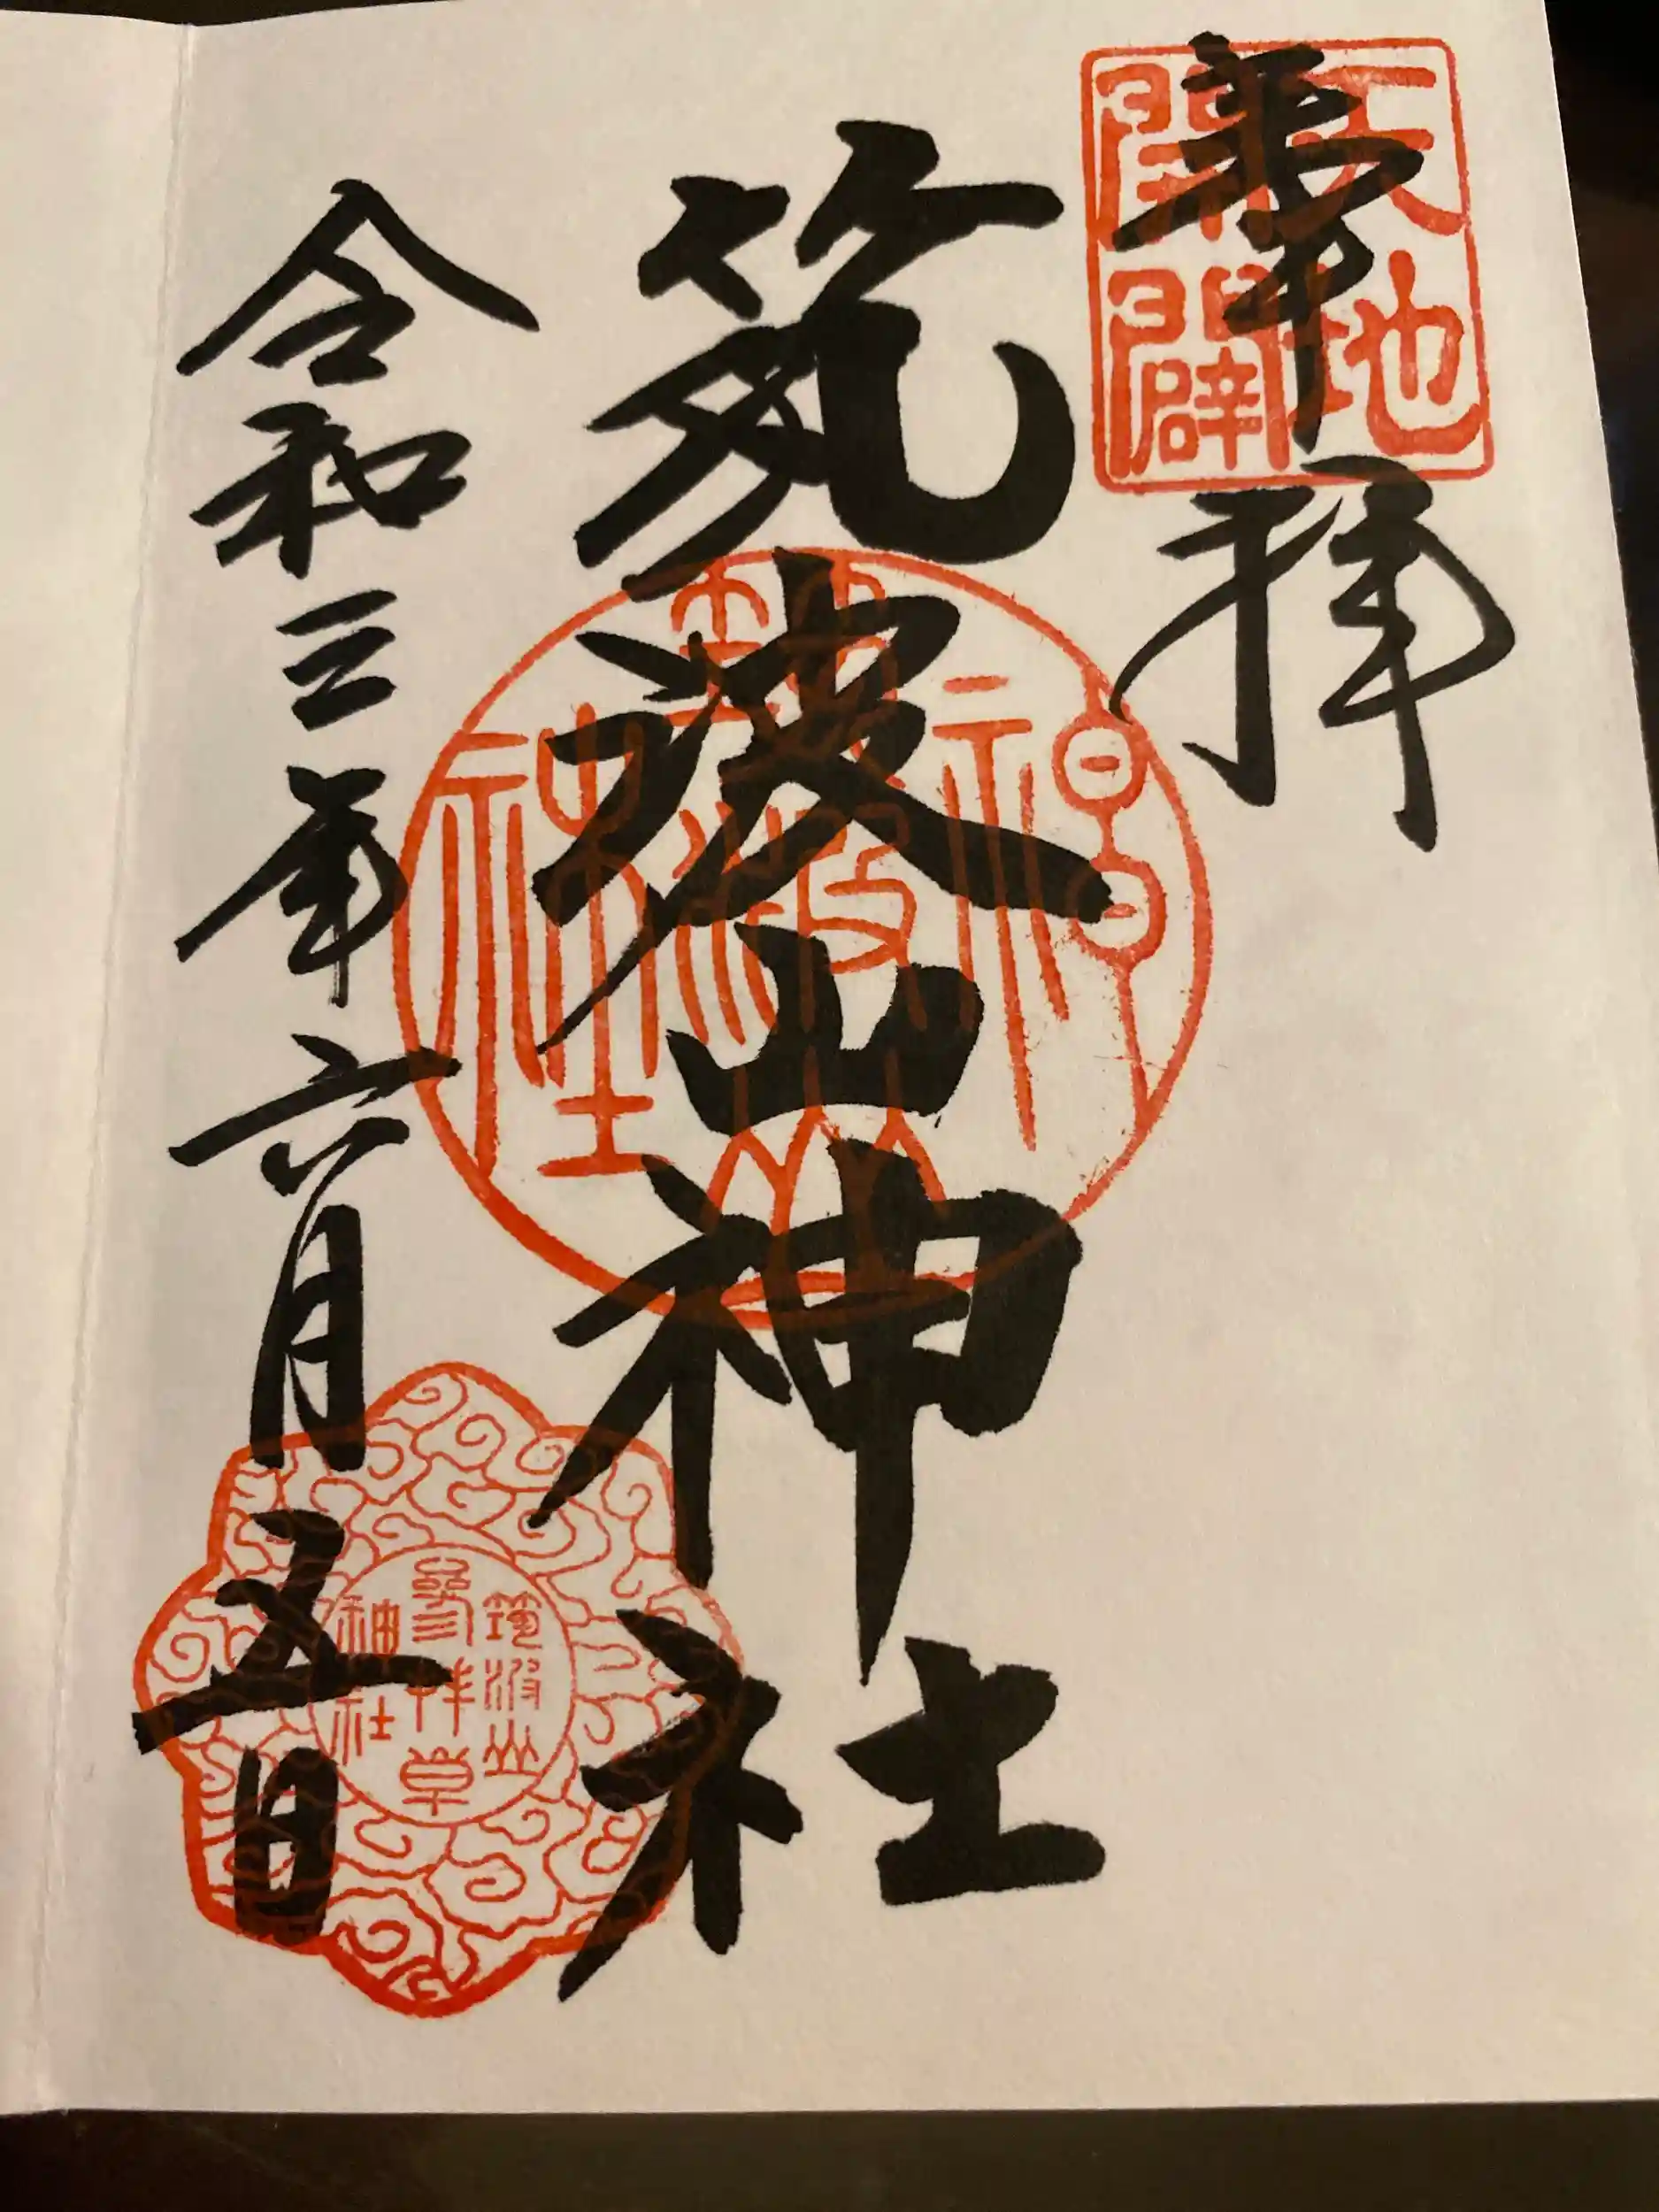 奉拝
天地
開闢
筑波山神社
筑波山
神社
令和三年六月五日
筑波山
参拝章
神社